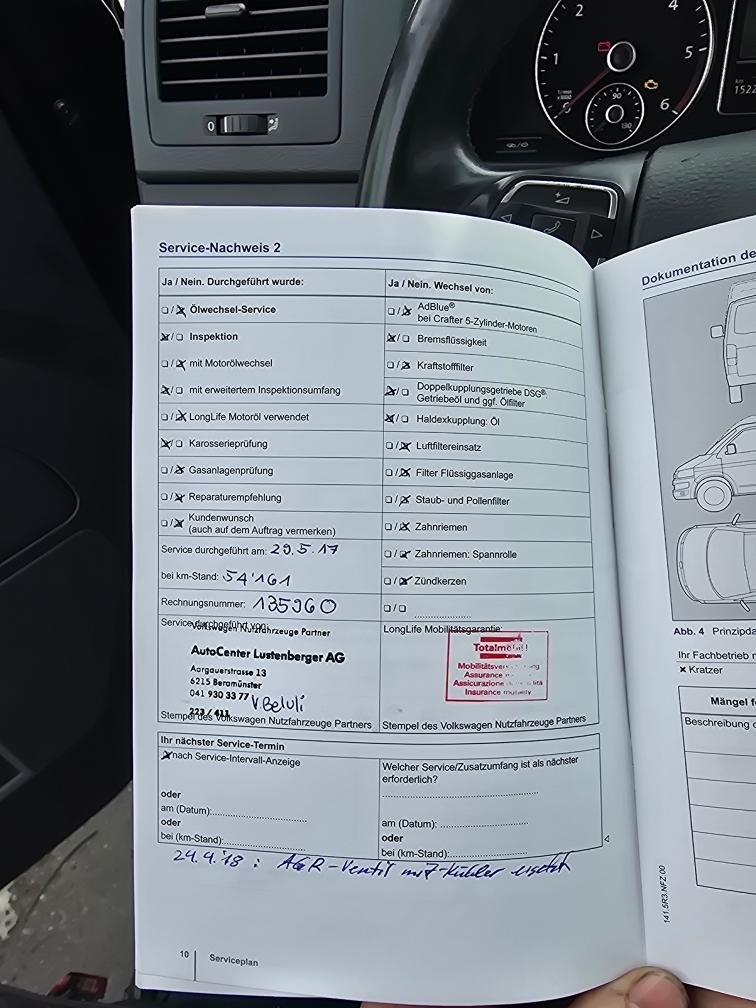 2
4
1
5
1/min
x1000
90
0
6
130
km
1522
0
Service-Nachweis 2
Ja / Nein. Durchgeführt wurde:
Ölwechsel-Service
Inspektion
mit Motorölwechsel
mit erweitertem Inspektionsumfang
LongLife Motoröl verwendet
Karosserieprüfung
Gasanlagenprüfung
Reparaturempfehlung
Kundenwunsch
(auch auf dem Auftrag vermerken)
Service durchgeführt am: 29.5.17
bei km-Stand: 54'161
Rechnungsnummer: 135960
Service durchgeführt von:
Volkswagen Nutzfahrzeuge Partner
AutoCenter Lustenberger AG
Aargauerstrasse 13
6215 Beromünster
041 930 33 77 V. Beluli
223 / 411
Stempel des Volkswagen Nutzfahrzeuge Partners
Ja / Nein. Wechsel von:
AdBlue®
bei Crafter 5-Zylinder-Motoren
Bremsflüssigkeit
Kraftstofffilter
Doppelkupplungsgetriebe DSG®:
Getriebeöl und ggf. Ölfilter
Haldexkupplung: Öl
Luftfiltereinsatz
Filter Flüssiggasanlage
Staub- und Pollenfilter
Zahnriemen
Zahnriemen: Spannrolle
Zündkerzen
LongLife Mobilitätsgarantie:
Totalmobil!
Assurance
Assicurazione
Insurance mobility
Stempel des Volkswagen Nutzfahrzeuge Partners
Ihr nächster Service-Termin
nach Service-Intervall-Anzeige
oder
am (Datum):
oder
bei (km-Stand):
Welcher Service/Zusatzumfang ist als nächster
erforderlich?
am (Datum):
oder
bei (km-Stand):
24.4.18 : AGR-Ventil mit Kühler ersetzt
10
Serviceplan
Dokumentation de
Abb. 4 Prinzipda
Ihr Fachbetrieb
× Kratzer
Mängel f
Beschreibung
141.5R3.NFZ.00